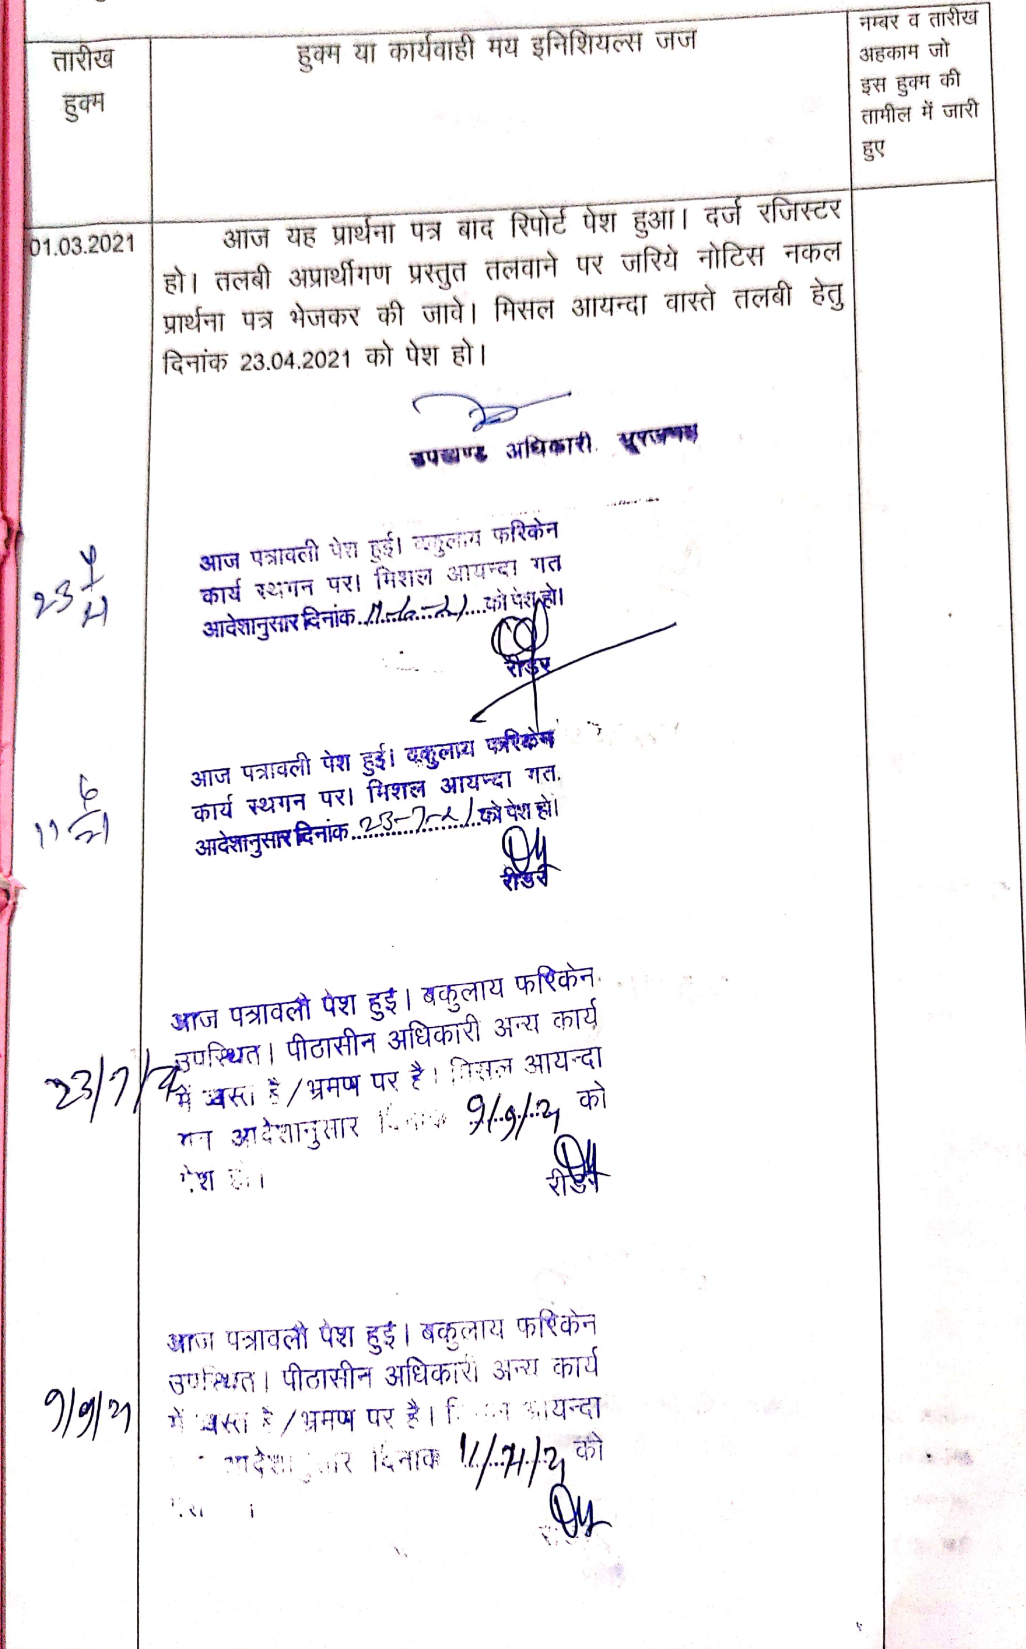 तारीख
हुक्म
हुक्म या कार्यवाही मय इनिशियल्स जज
नम्बर व तारीख
अहकाम जो
इस हुक्म की
तामील में जारी
हुए
01.03.2021
आज यह प्रार्थना पत्र बाद रिपोर्ट पेश हुआ। दर्ज रजिस्टर
हो। तलबी अप्रार्थीगण प्रस्तुत तलवाने पर जरिये नोटिस नकल
प्रार्थना पत्र भेजकर की जावे। मिसल आयन्दा वास्ते तलबी हेतु
दिनांक 23.04.2021 को पेश हो।
उपखण्ड अधिकारी
23/4/21
आज पत्रावली पेश हुई। वकुलाय फरिकेन
कार्य स्थगन पर। मिशल आयन्दा गत
आदेशानुसार दिनांक 11-6-21 को पेश हो।
रीडर
11/6/21
आज पत्रावली पेश हुई। वकुलाय फरिकेन
कार्य स्थगन पर। मिशल आयन्दा गत
आदेशानुसार दिनांक 23-7-21 को पेश हो।
रीडर
23/7/21
आज पत्रावली पेश हुई। बकुलाय फरिकेन
उपस्थित। पीठासीन अधिकारी अन्य कार्य
में व्यस्त है/भ्रमण पर है। मिसल आयन्दा
गत आदेशानुसार दिनांक 9/9/21 को
पेश हो।
रीडर
9/9/21
आज पत्रावली पेश हुई। बकुलाय फरिकेन
उपस्थित। पीठासीन अधिकारी अन्य कार्य
में व्यस्त है/भ्रमण पर है। आयन्दा
आदेशानुसार दिनांक 11/11/21 को